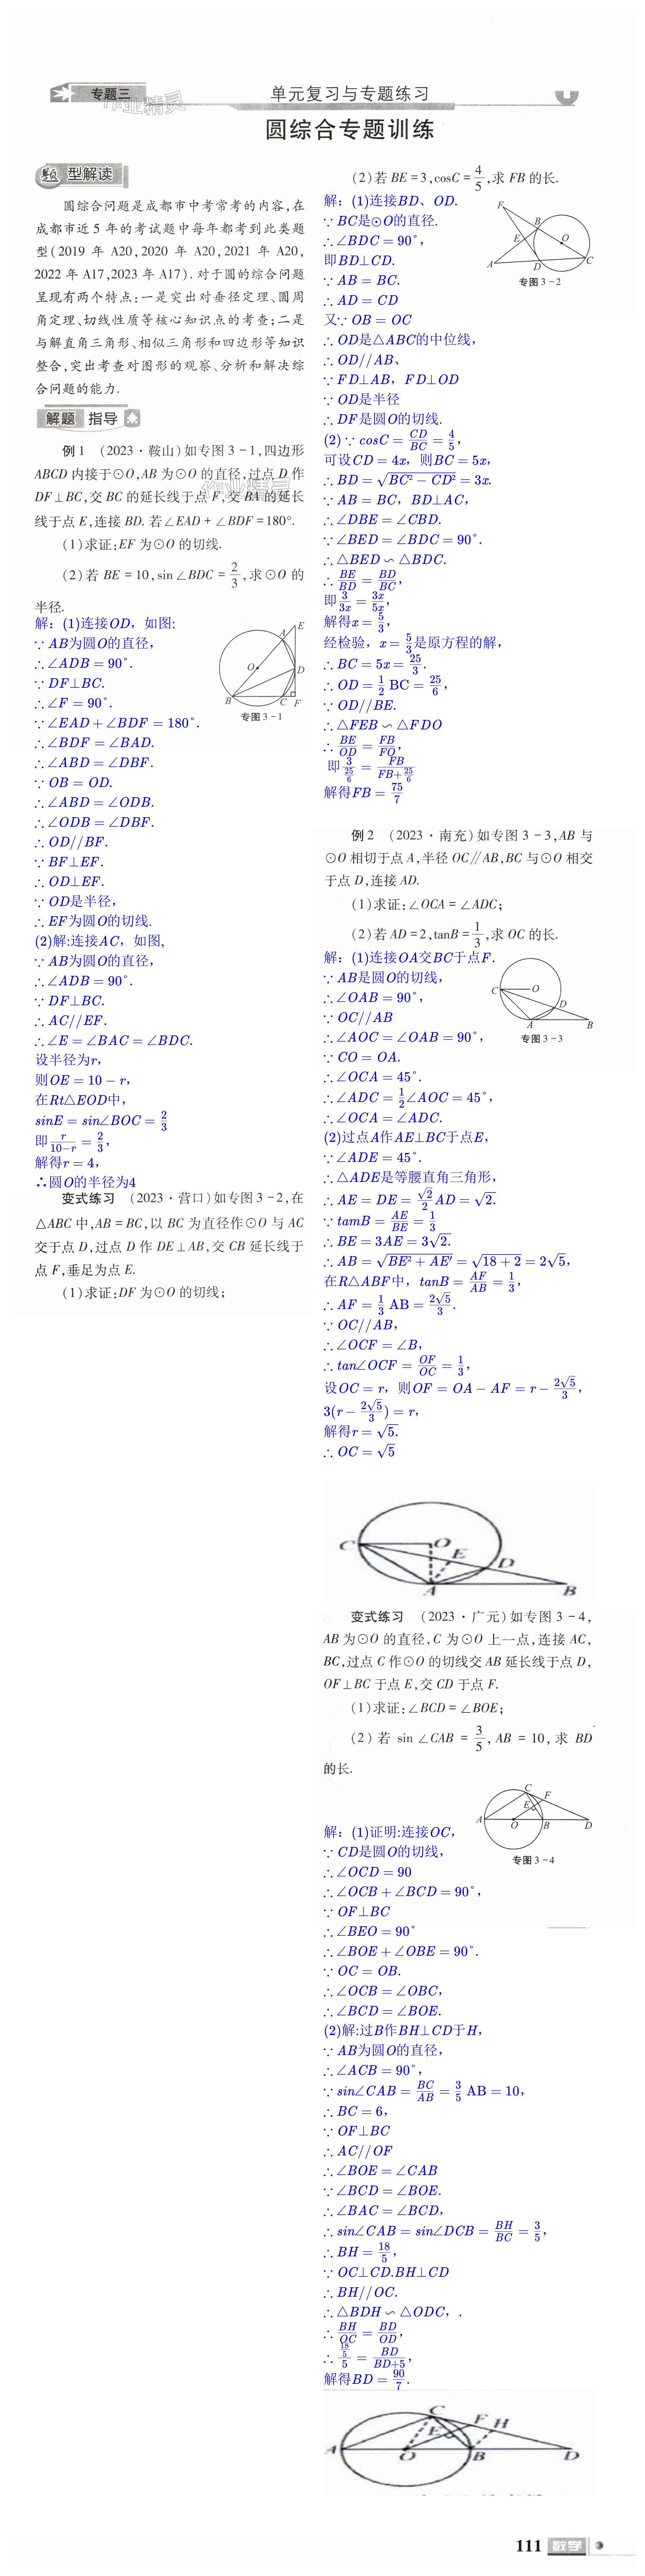 专题三
单元复习与专题练习
圆综合专题训练
题型解读
圆综合问题是成都市中考常考的内容,在
成都市近5年的考试题中每年都考到此类题
型(2019年A20,2020年A20,2021年A20,
2022年A17,2023年A17).对于圆的综合问题
呈现有两个特点:一是突出对垂径定理、圆周
角定理、切线性质等核心知识点的考查;二是
与解直角三角形、相似三角形和四边形等知识
整合,突出考查对图形的观察、分析和解决综
合问题的能力.
解题指导
例1 (2023·鞍山)如专图3-1,四边形
ABCD内接于⊙O,AB为⊙O的直径,过点D作
DF⊥BC,交BC的延长线于点F,交BA的延长
线于点E,连接BD.若∠EAD+∠BDF=180°.
(1)求证:EF为⊙O的切线.
(2)若BE=10,sin∠BDC=2/3,求⊙O的
半径.
解：(1)连接OD，如图:
∵AB为圆O的直径，
∴∠ADB=90°.
∵DF⊥BC.
∴∠F=90°.
∵∠EAD+∠BDF=180°.
∴∠BDF=∠BAD.
∴∠ABD=∠DBF.
∵OB=OD.
∴∠ABD=∠ODB.
∴∠ODB=∠DBF.
∴OD//BF.
∵BF⊥EF.
∴OD⊥EF.
∵OD是半径，
∴EF为圆O的切线.
(2)解:连接AC，如图,
∵AB为圆O的直径，
∴∠ADB=90°.
∵DF⊥BC.
∴AC//EF.
∴∠E=∠BAC=∠BDC.
设半径为r，
则OE=10−r，
在Rt△EOD中，
sinE=sin∠BOC=2/3
即r/(10−r)=2/3，
解得r=4，
∴圆O的半径为4
A E O D B C F
专图3-1
变式练习 (2023·营口)如专图3-2,在
△ABC中,AB=BC,以BC为直径作⊙O与AC
交于点D,过点D作DE⊥AB,交CB延长线于
点F,垂足为点E.
(1)求证:DF为⊙O的切线;
(2)若BE=3,cosC=4/5,求FB的长.
解：(1)连接BD、OD.
∵BC是⊙O的直径.
∴∠BDC=90°，
即BD⊥CD.
∵AB=BC.
∴AD=CD
又∵OB=OC
∴OD是△ABC的中位线，
∴OD//AB、
∵FD⊥AB，FD⊥OD
∵OD是半径
∴DF是圆O的切线.
(2)∵cosC=CD/BC=4/5，
可设CD=4x，则BC=5x，
∴BD=√(BC²−CD²)=3x.
∵AB=BC，BD⊥AC，
∴∠DBE=∠CBD.
∵∠BED=∠BDC=90°.
∴△BED∽△BDC.
∴BE/BD=BD/BC，
即3/3x=3x/5x，
解得x=5/3，
经检验，x=5/3是原方程的解，
∴BC=5x=25/3.
∴OD=1/2 BC=25/6，
∵OD//BE.
∴△FEB∽△FDO
∴BE/OD=FB/FO，
即3/(25/6)=FB/(FB+25/6)
解得FB=75/7
F B E O A D C
专图3-2
例2 (2023·南充)如专图3-3,AB与
⊙O相切于点A,半径OC∥AB,BC与⊙O相交
于点D,连接AD.
(1)求证:∠OCA=∠ADC;
(2)若AD=2,tanB=1/3,求OC的长.
解：(1)连接OA交BC于点F.
∵AB是圆O的切线，
∴∠OAB=90°，
∵OC//AB
∴∠AOC=∠OAB=90°，
∵CO=OA.
∴∠OCA=45°.
∴∠ADC=1/2∠AOC=45°，
∴∠OCA=∠ADC.
(2)过点A作AE⊥BC于点E，
∵∠ADE=45°.
∴△ADE是等腰直角三角形，
∴AE=DE=√2/2 AD=√2.
∵tamB=AE/BE=1/3
∴BE=3AE=3√2.
∴AB=√(BE²+AE′)=√(18+2)=2√5，
在R△ABF中，tanB=AF/AB=1/3，
∴AF=1/3 AB=2√5/3.
∵OC//AB，
∴∠OCF=∠B，
∴tan∠OCF=OF/OC=1/3，
设OC=r，则OF=OA−AF=r−2√5/3，
3(r−2√5/3)=r，
解得r=√5.
∴OC=√5
C O D A B
专图3-3
C O E D A B
变式练习 (2023·广元)如专图3-4,
AB为⊙O的直径,C为⊙O上一点,连接AC,
BC,过点C作⊙O的切线交AB延长线于点D,
OF⊥BC于点E,交CD于点F.
(1)求证:∠BCD=∠BOE;
(2)若sin∠CAB=3/5,AB=10,求BD
的长.
C F E A O B D
专图3-4
解：(1)证明:连接OC，
∵CD是圆O的切线，
∴∠OCD=90
∴∠OCB+∠BCD=90°，
∵OF⊥BC
∴∠BEO=90°
∴∠BOE+∠OBE=90°.
∵OC=OB.
∴∠OCB=∠OBC，
∴∠BCD=∠BOE.
(2)解:过B作BH⊥CD于H，
∵AB为圆O的直径，
∴∠ACB=90°，
∵sin∠CAB=BC/AB=3/5 AB=10，
∴BC=6，
∵OF⊥BC
∴AC//OF
∴∠BOE=∠CAB
∵∠BCD=∠BOE.
∴∠BAC=∠BCD，
∴sin∠CAB=sin∠DCB=BH/BC=3/5，
∴BH=18/5，
∵OC⊥CD.BH⊥CD
∴BH//OC.
∴△BDH∽△ODC，.
∴BH/OC=BD/OD，
∴(18/5)/5=BD/(BD+5)，
解得BD=90/7.
C F H E A O B D
111 数学